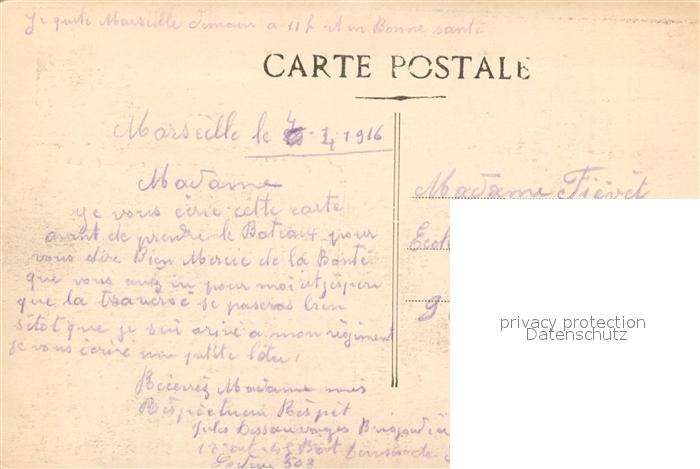 Je quite Marseille demain a 11 h et en Bonne santé
CARTE POSTALE
Marseille le 4-4 1916
Madame
je vous écrie cétte carte
avant de prendre le Bateaux pour
vous dire Bien Mercie de la Bonté
que vous avéz eu pour moi et jéspère
que la traversé se paseras bien
sitot que je sui arivé a mon régiment
je vous écriré une petite létre,
Recevréz Madame mes
Réspéctueux Réspét
Jules Dessauvages
17 art 45 Bat
Secteur 508
Madame Fiévét
Ecol
9
privacy protection
Datenschutz